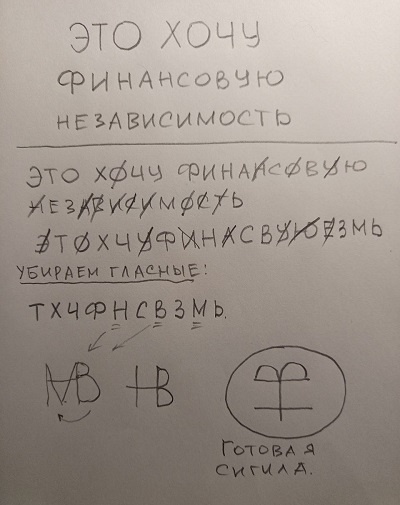 ЭТО ХОЧУ
ФИНАНСОВУЮ
НЕЗАВИСИМОСТЬ
ЭТО ХОЧУ ФИНАНСОВУЮ
НЕЗАВИСИМОСТЬ
ЭТОХЧУФИНАСВУЮЕЗМЬ
УБИРАЕМ ГЛАСНЫЕ:
ТХЧФНСВЗМЬ.
ГОТОВАЯ
СИГИЛА.